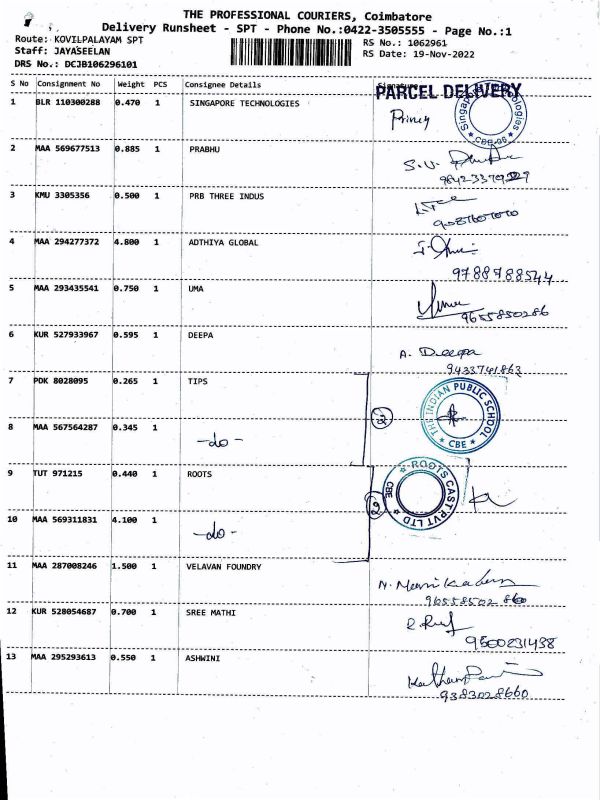 THE PROFESSIONAL COURIERS, Coimbatore
Delivery Runsheet - SPT - Phone No.:0422-3505555 - Page No.:1
Route: KOVILPALAYAM SPT
Staff: JAYASEELAN
DRS No.: DCJB106296101
RS No.: 1062961
RS Date: 19-Nov-2022
S No Consignment No Weight PCS Consignee Details
PARCEL DELIVERY
1 BLR 110300288 0.470 1 SINGAPORE TECHNOLOGIES
2 MAA 569677513 0.885 1 PRABHU
3 KMU 3305356 0.500 1 PRB THREE INDUS
4 MAA 294277372 4.800 1 ADTHIYA GLOBAL
9788788544
5 MAA 293435541 0.750 1 UMA
9655850286
6 KUR 527933967 0.595 1 DEEPA
A. Deepa
9433741863
7 PDK 8028095 0.265 1 TIPS
THE INDIAN PUBLIC SCHOOL
CBE
8 MAA 567564287 0.345 1 -do-
9 TUT 971215 0.440 1 ROOTS
ROOTS CAST PVT LTD
CBE
10 MAA 569311831 4.100 1 -do-
11 MAA 287008246 1.500 1 VELAVAN FOUNDRY
96558502 860
12 KUR 528054687 0.700 1 SREE MATHI
13 MAA 295293613 0.550 1 ASHWINI
9383028660